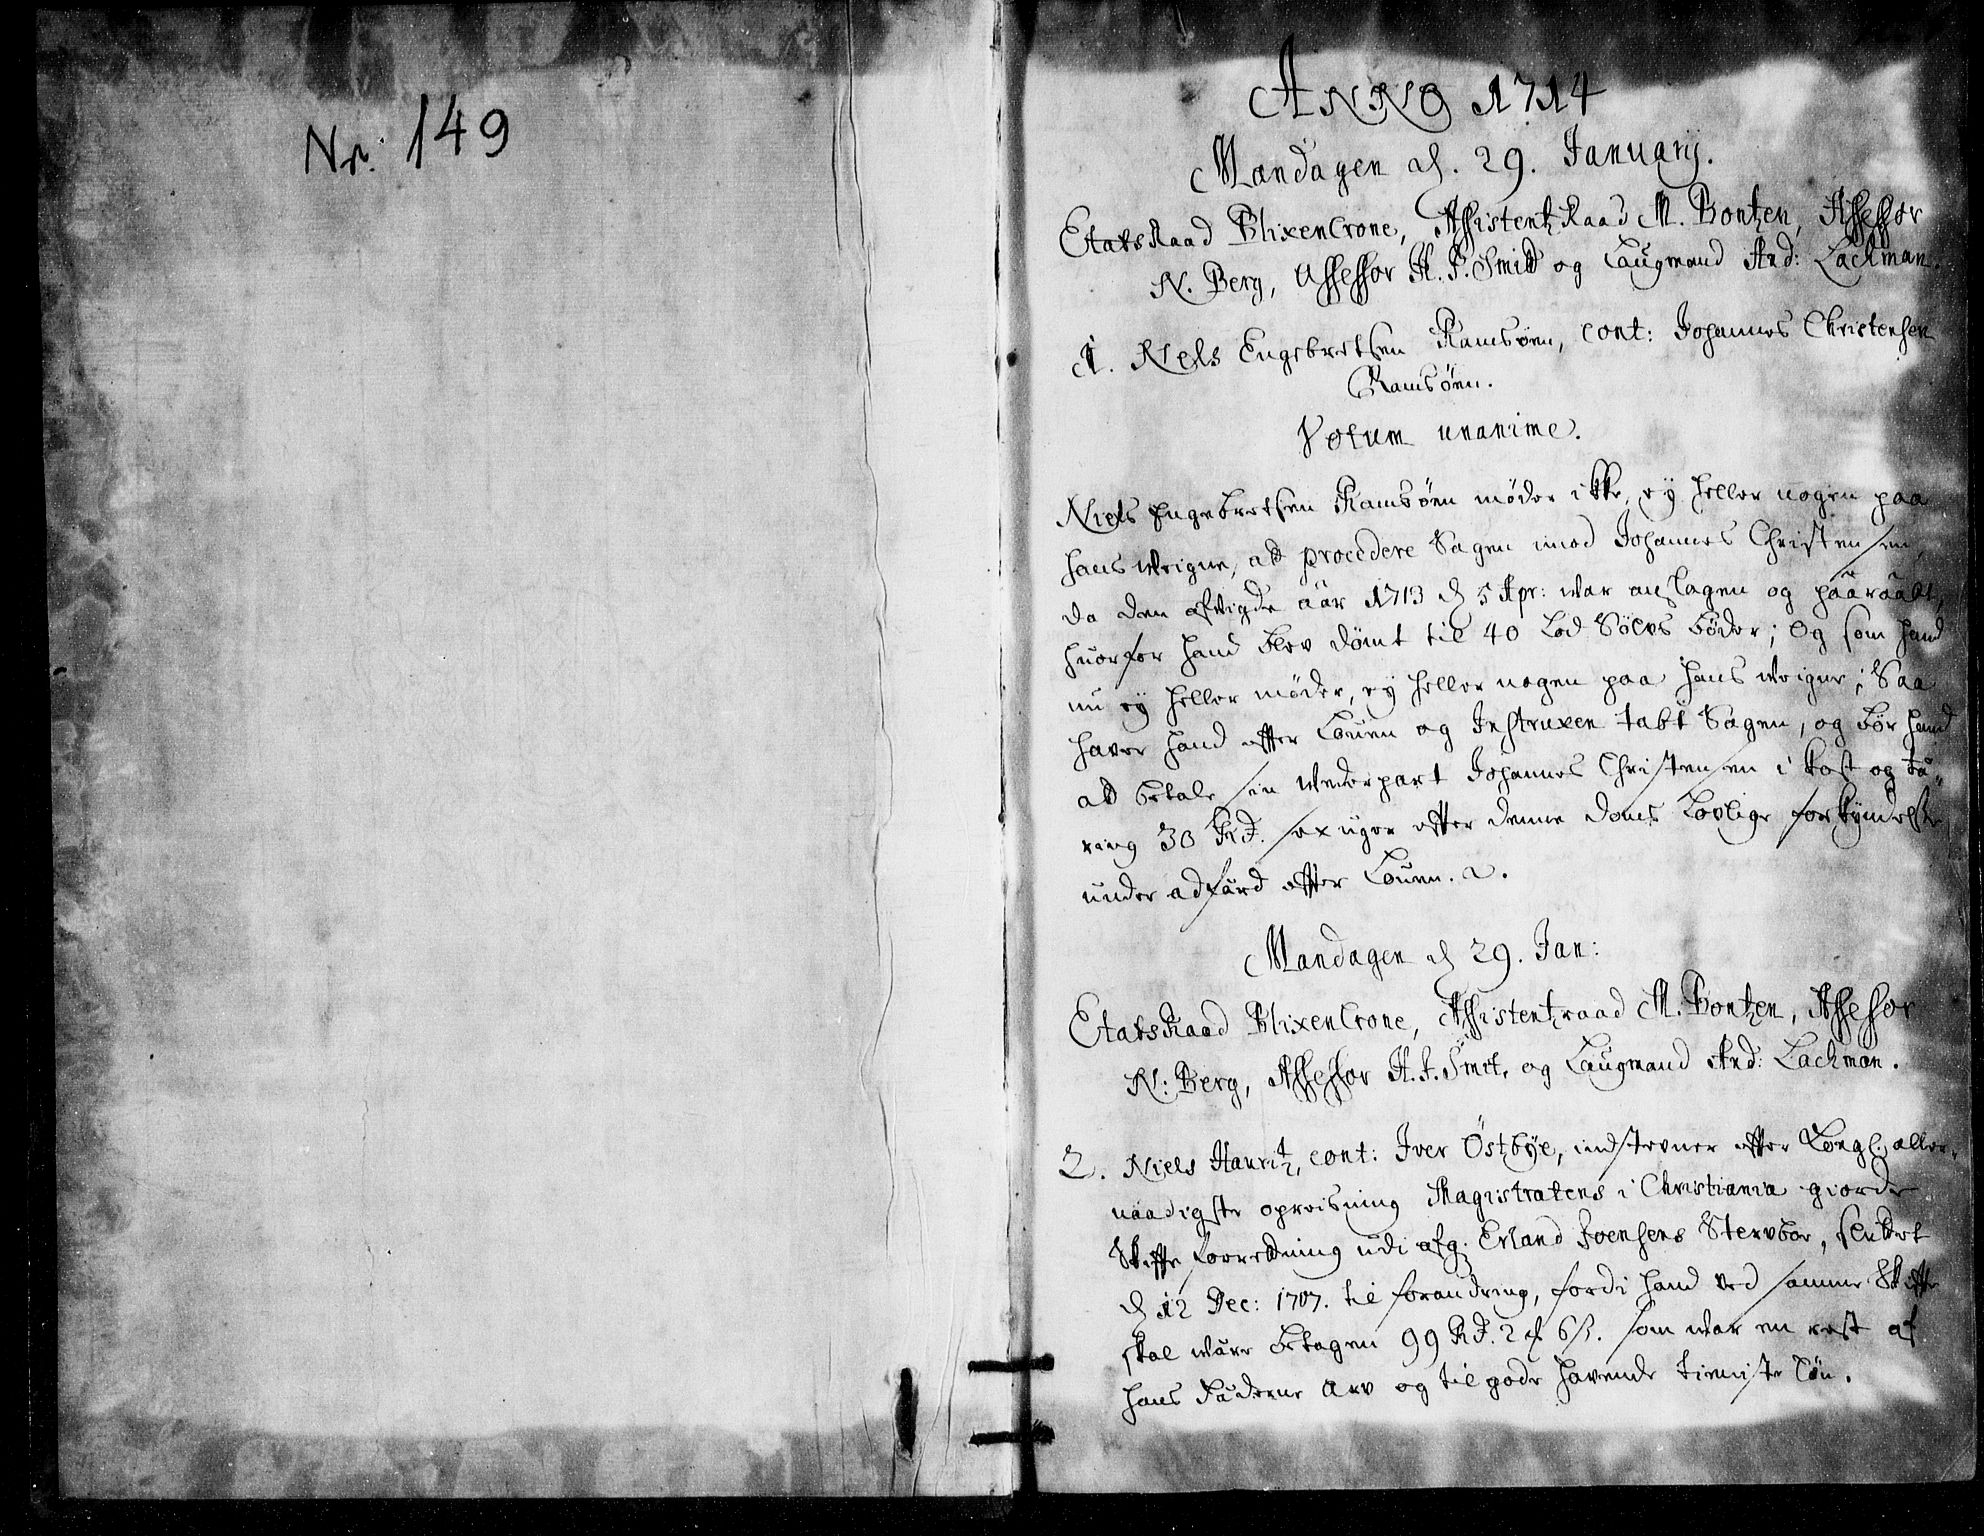 Nr. 149
ANNO 1714
Mandagen d. 29. Januarij.
Etats Raad Blixencrone, Assistentz Raad M. Bontzen, Assessor
N. Berg, Assessor H. P. Smid og Laugmand And: Lachman.
1. Niels Engebretsen Ramsøen, cont: Johannes Christensen
Ramsøen.
Votum unanime.
Niels Engebretsen Ramsøen møder ikke, ey heller nogen paa
hans weigne, at procedere Sagen imod Johannes Christensen,
da den afvigde aar 1713 d 5 Apr: war anslagen og paaraabt,
huorfor hand blev dømt til 40 Lod Sølvs bøder; og som hand
nu ey heller møder, ey heller nogen paa hans weigne; Saa
haver hand efter Louen og Instruxen tabt Sagen, og bør hand
at betale sin Wederpart Johannes Christensen i kost og tæ-
ring 30 Rd. sex uger efter denne doms Lovlige forkyndelse
under adfærd efter Louen.
Mandagen d 29. Jan:
Etats Raad Blixencrone, Assistentzraad M. Bontzen, Assessor
N: Berg, Assessor H. P. Smit, og Laugmand And: Lachman.
2. Niels Hauritz, cont: Iver Østbye, indstevner efter Kongl: aller-
naadigste opreisning Magistratens i Christiania giorde
Skifte forretning udi afg: Erland Joensens Sterboe, sluttet
d 12 Dec: 1707. til forandring, fordi hand ved samme Skifte
skal wære betagen 99 Rd. 2 6 s. som war en rest af
hans Fæderne Arv og tilgode havende tieniste løn.